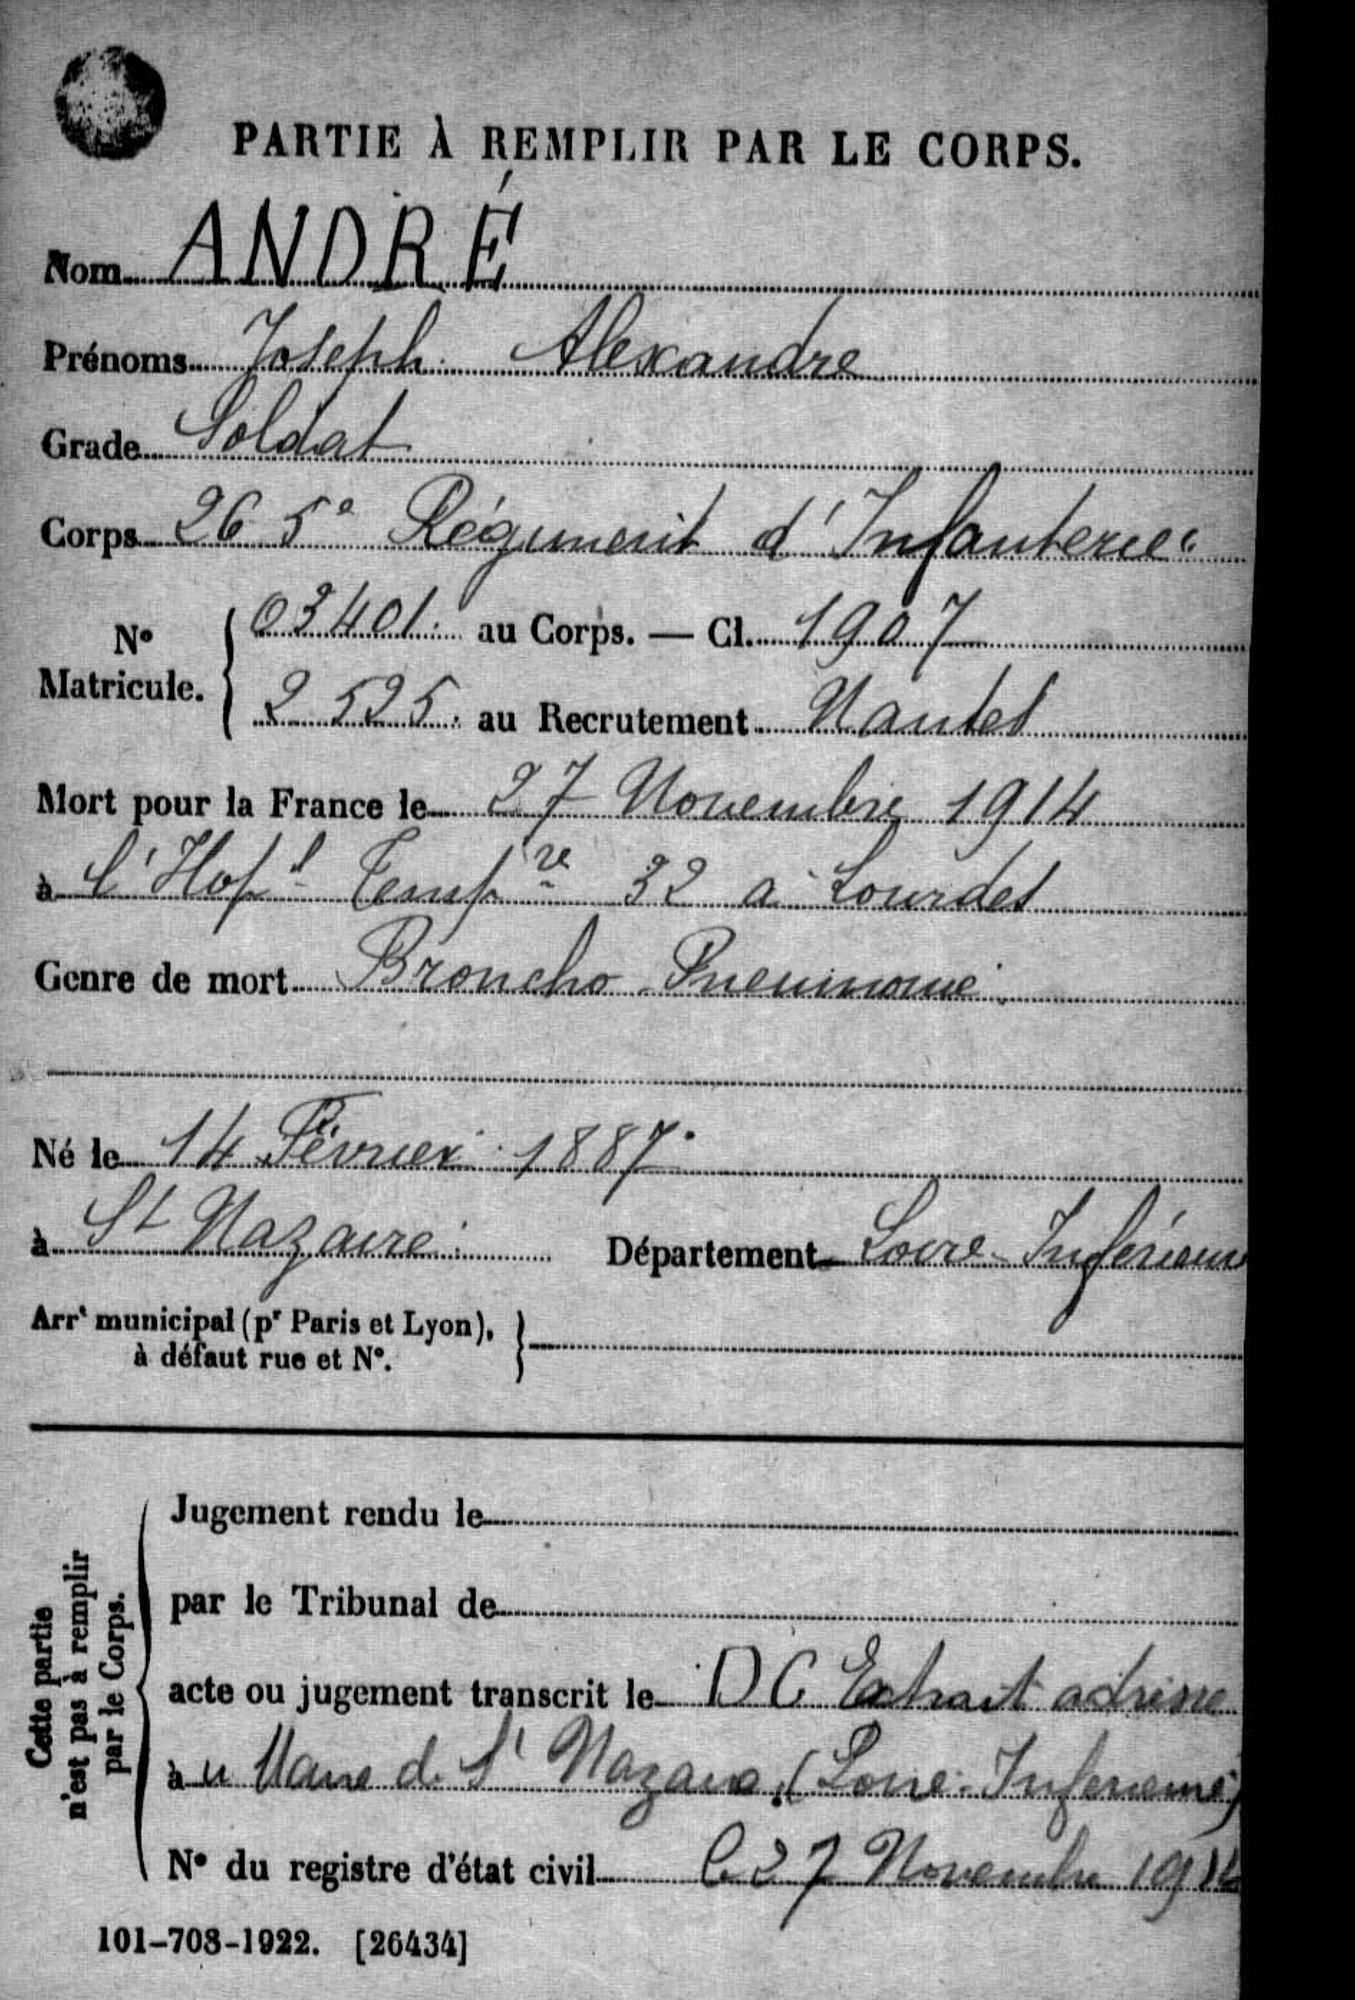 PARTIE À REMPLIR PAR LE CORPS.
Nom ANDRÉ
Prénoms Joseph Alexandre
Grade Soldat
Corps 265e Régiment d'Infanterie
N° Matricule. { 03401. au Corps. — Cl. 1907
2525. au Recrutement Nantes
Mort pour la France le 27 Novembre 1914
à l'Hopl Tempre 32 à Lourdes
Genre de mort Broncho-Pneumonie
Né le 14 Février 1887.
à St Nazaire Département Loire-Inférieure
Arrt municipal (pr Paris et Lyon),
à défaut rue et N°.
Cette partie
n'est pas à remplir
par le Corps.
Jugement rendu le
par le Tribunal de
acte ou jugement transcrit le DC Extrait adresse
à u Maire de St Nazaire (Loire-Inferieure)
N° du registre d'état civil le 27 Novembre 1914
101-708-1922. [26434]